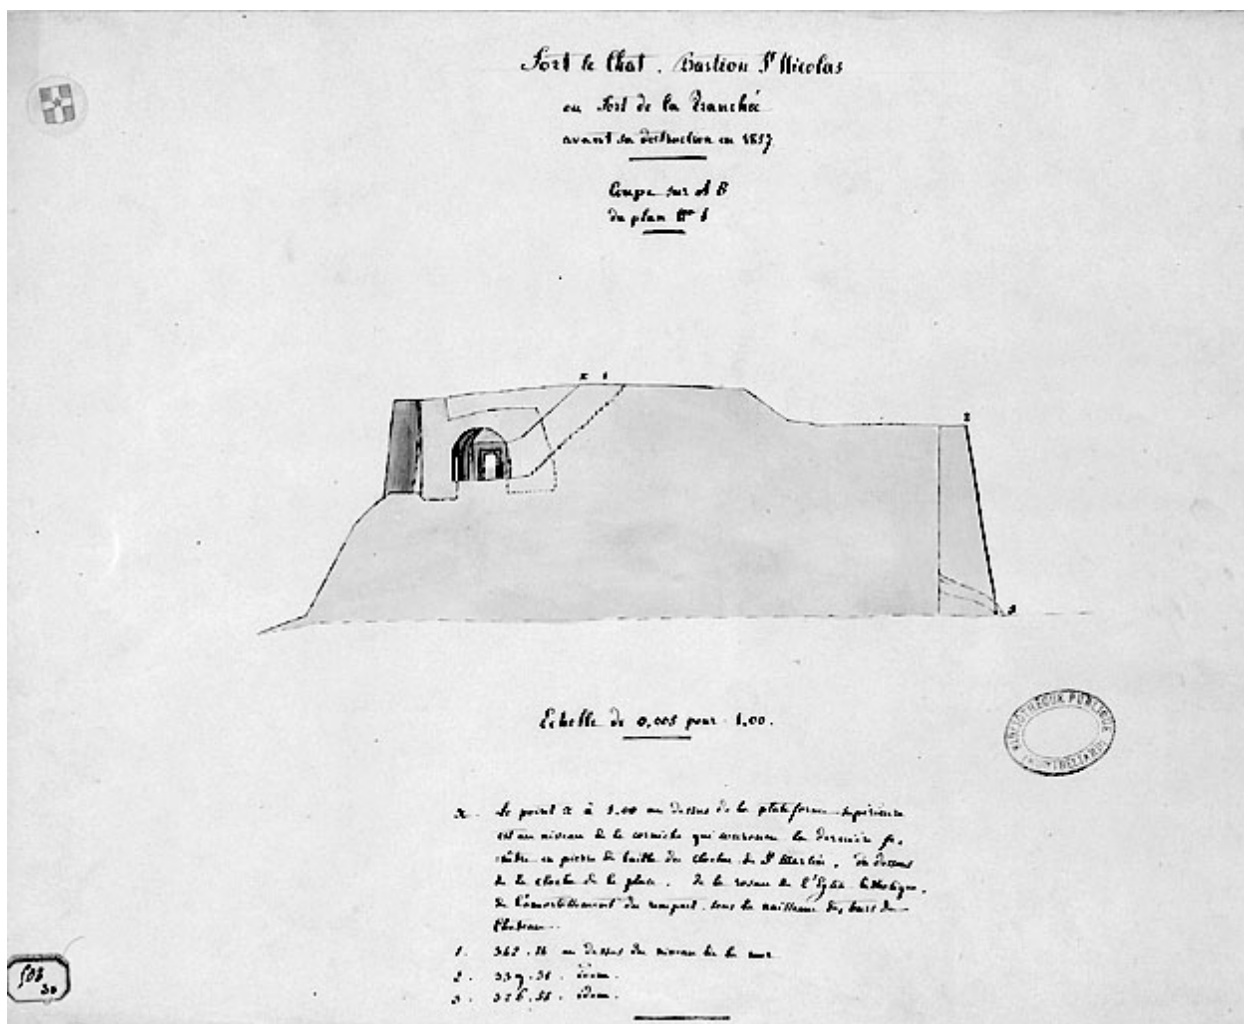 Fort le Chat. Bastion St Nicolas
ou Fort de la Tranchée
avant sa destruction en 1857
Coupe sur A B
du plan No 1
x 1
2
3
Echelle de 0,005 pour 1,00.
BIBLIOTHEQUE PUBLIQUE
MONTBELIARD
x. Le point x à 1.00 au dessus de la plateforme supérieure
est au niveau de la corniche qui couronne la dernière fe-
nêtre en pierre de taille du clocher de St Martin, du dessus
de la cloche de la place, de la rosace de l'Eglise Catholique,
de l'amortissement du rempart sous la naissance des tours du
Chateau.
1. au dessus du niveau de la mer
2. idem.
3. idem.